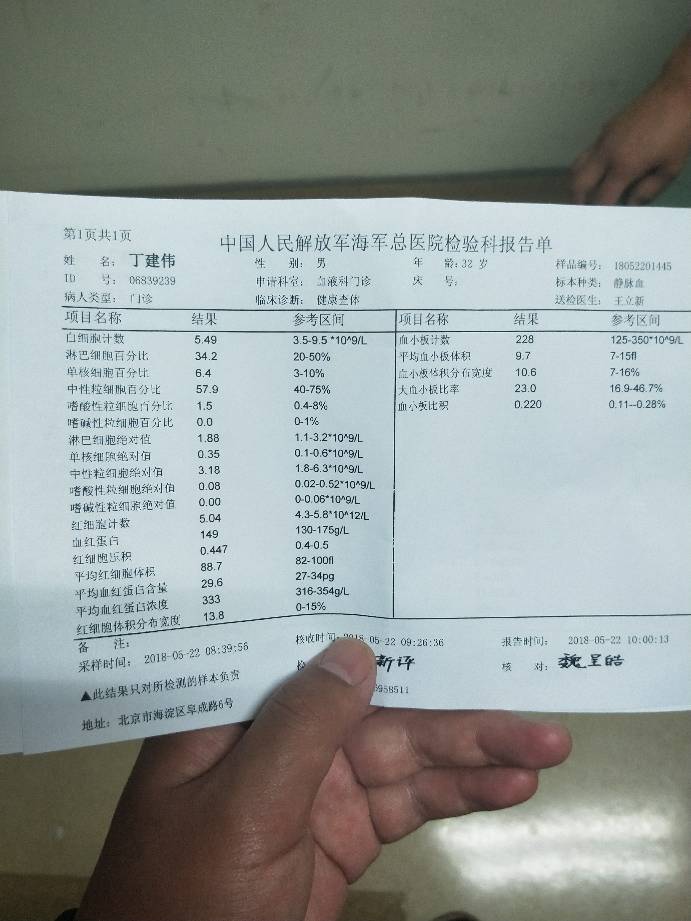 第1页共1页
中国人民解放军海军总医院检验科报告单
姓 名： 丁建伟 性 别： 男 年 龄:32 岁 样品编号： 18052201445
ID 号： 06839239 申请科室： 血液科门诊 床 号： 标本种类： 静脉血
病人类型： 门诊 临床诊断： 健康查体 送检医生： 王立新
项目名称 结果 参考区间 项目名称 结果 参考区间
白细胞计数 5.49 3.5-9.5 *10^9/L 血小板计数 228 125-350*10^9/L
淋巴细胞百分比 34.2 20-50% 平均血小板体积 9.7 7-15fl
单核细胞百分比 6.4 3-10% 血小板体积分布宽度 10.6 7-16%
中性粒细胞百分比 57.9 40-75% 大血小板比率 23.0 16.9-46.7%
嗜酸性粒细胞百分比 1.5 0.4-8% 血小板比积 0.220 0.11--0.28%
嗜碱性粒细胞百分比 0.0 0-1%
淋巴细胞绝对值 1.88 1.1-3.2*10^9/L
单核细胞绝对值 0.35 0.1-0.6*10^9/L
中性粒细胞绝对值 3.18 1.8-6.3*10^9/L
嗜酸性粒细胞绝对值 0.08 0.02-0.52*10^9/L
嗜碱性粒细胞绝对值 0.00 0-0.06*10^9/L
红细胞计数 5.04 4.3-5.8*10^12/L
血红蛋白 149 130-175g/L
红细胞压积 0.447 0.4-0.5
平均红细胞体积 88.7 82-100fl
平均血红蛋白含量 29.6 27-34pg
平均血红蛋白浓度 333 316-354g/L
红细胞体积分布宽度 13.8 0-15%
备 注：
采样时间： 2018-05-22 08:39:56 核收时间： 2018-05-22 09:26:36 报告时间： 2018-05-22 10:00:13
核 对： 魏呈皓
▲此结果只对所检测的样本负责 958511
地址： 北京市海淀区阜成路6号